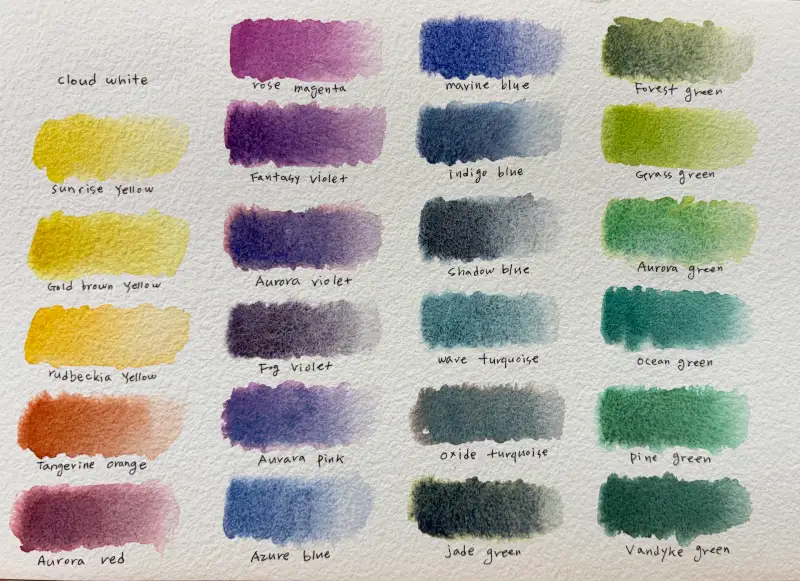 cloud white
sunrise yellow
Gold brown yellow
rudbeckia yellow
Tangerine orange
Aurora red
rose magenta
Fantasy violet
Aurora violet
Fog violet
Aurara pink
Azure blue
marine blue
indigo blue
shadow blue
wave turquoise
oxide turquoise
jade green
Forest green
Grass green
Aurora green
ocean green
pine green
Vandyke green